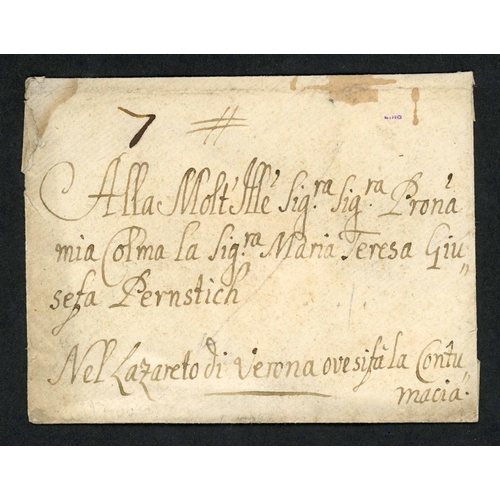 7 #
Alla Molt' Ill'e Sig.ra Sig.ra Pron'a
mia Colma la Sig.ra Maria Teresa Giu„
sefa Pernstich
Nel Lazareto di Verona ove si fà la Contu„
macia.